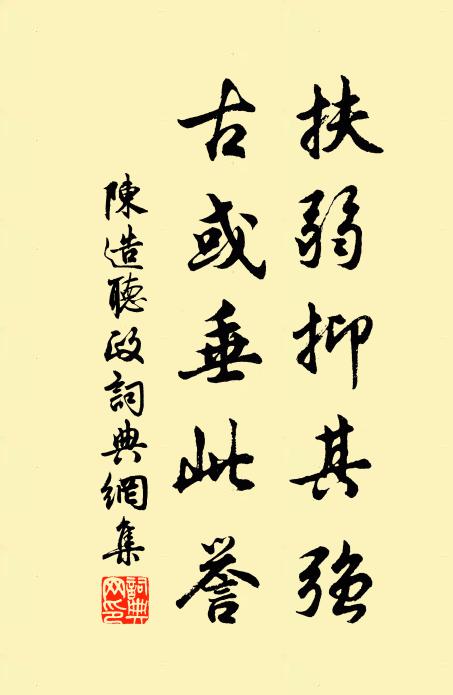 扶弱抑其強
古或垂此誉
陳造聽政詞典網集
詞典
网印